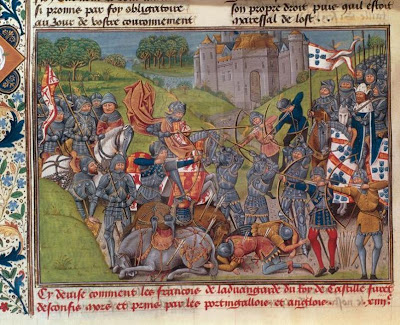 si promis par foy obligatoire
au Jour de vostre couronnement
son propre droit puis quil estoit
mareſſal de lost
Cy deuise comment les francois de laduangarde du roy de Castille furēt
desconfis mors et prins par les portingallois et anglois